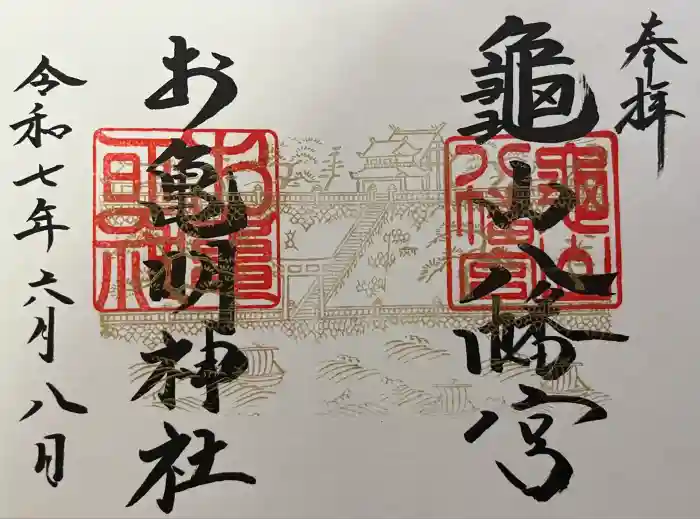 奉拝
龜山八幡宮
お亀明神社
令和七年六月八日